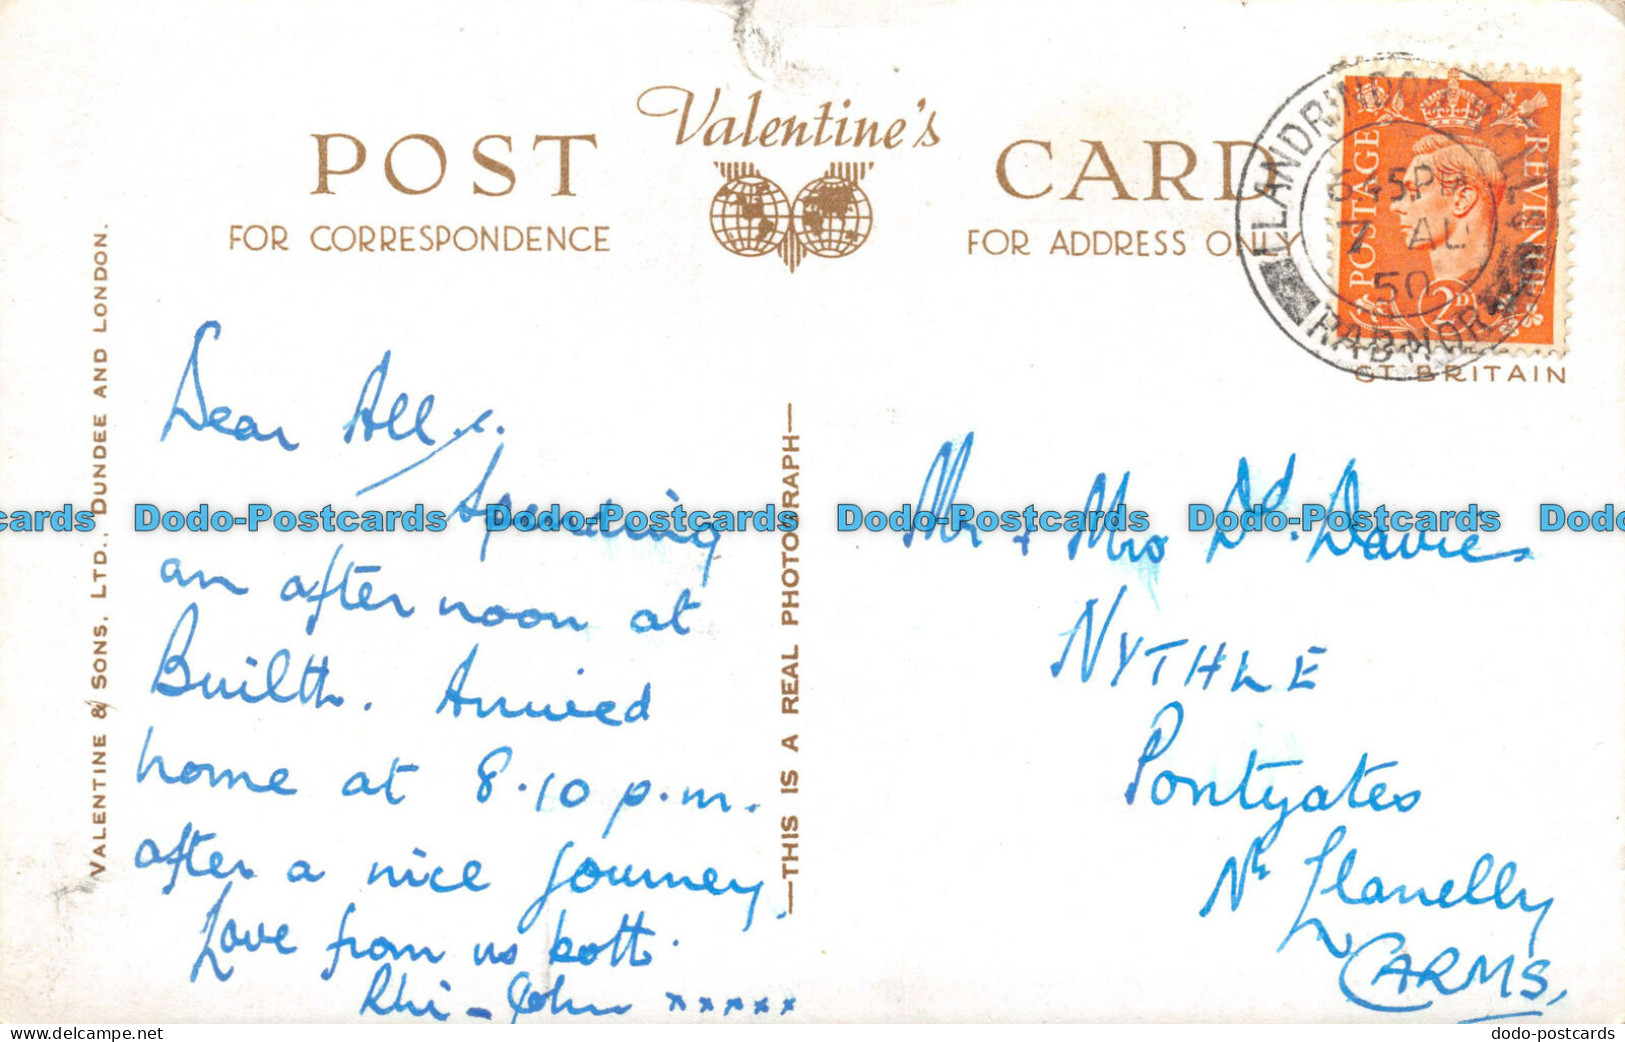 POST Valentine's CARD
FOR CORRESPONDENCE
FOR ADDRESS ONLY
LLANDRINDOD WELLS
6 45 PM
7 AU
50
RADNORSHIRE
POSTAGE REVENUE
2D
GT. BRITAIN
VALENTINE & SONS, LTD., DUNDEE AND LONDON.
THIS IS A REAL PHOTOGRAPH
Dear All,
Spending
an after noon at
Builth. Arrived
home at 8.10 p.m.
after a nice journey.
Love from us both.
Rhi - John xxxxx
Mr & Mrs Dd. Davies
NYTHLE
Pontyates
Nr Llanelly
CARMS.
cards Dodo-Postcards Dodo-Postcards Dodo-Postcards Dodo-Postcards Dodo
dodo-postcards delcampe.net
dodo-postcards